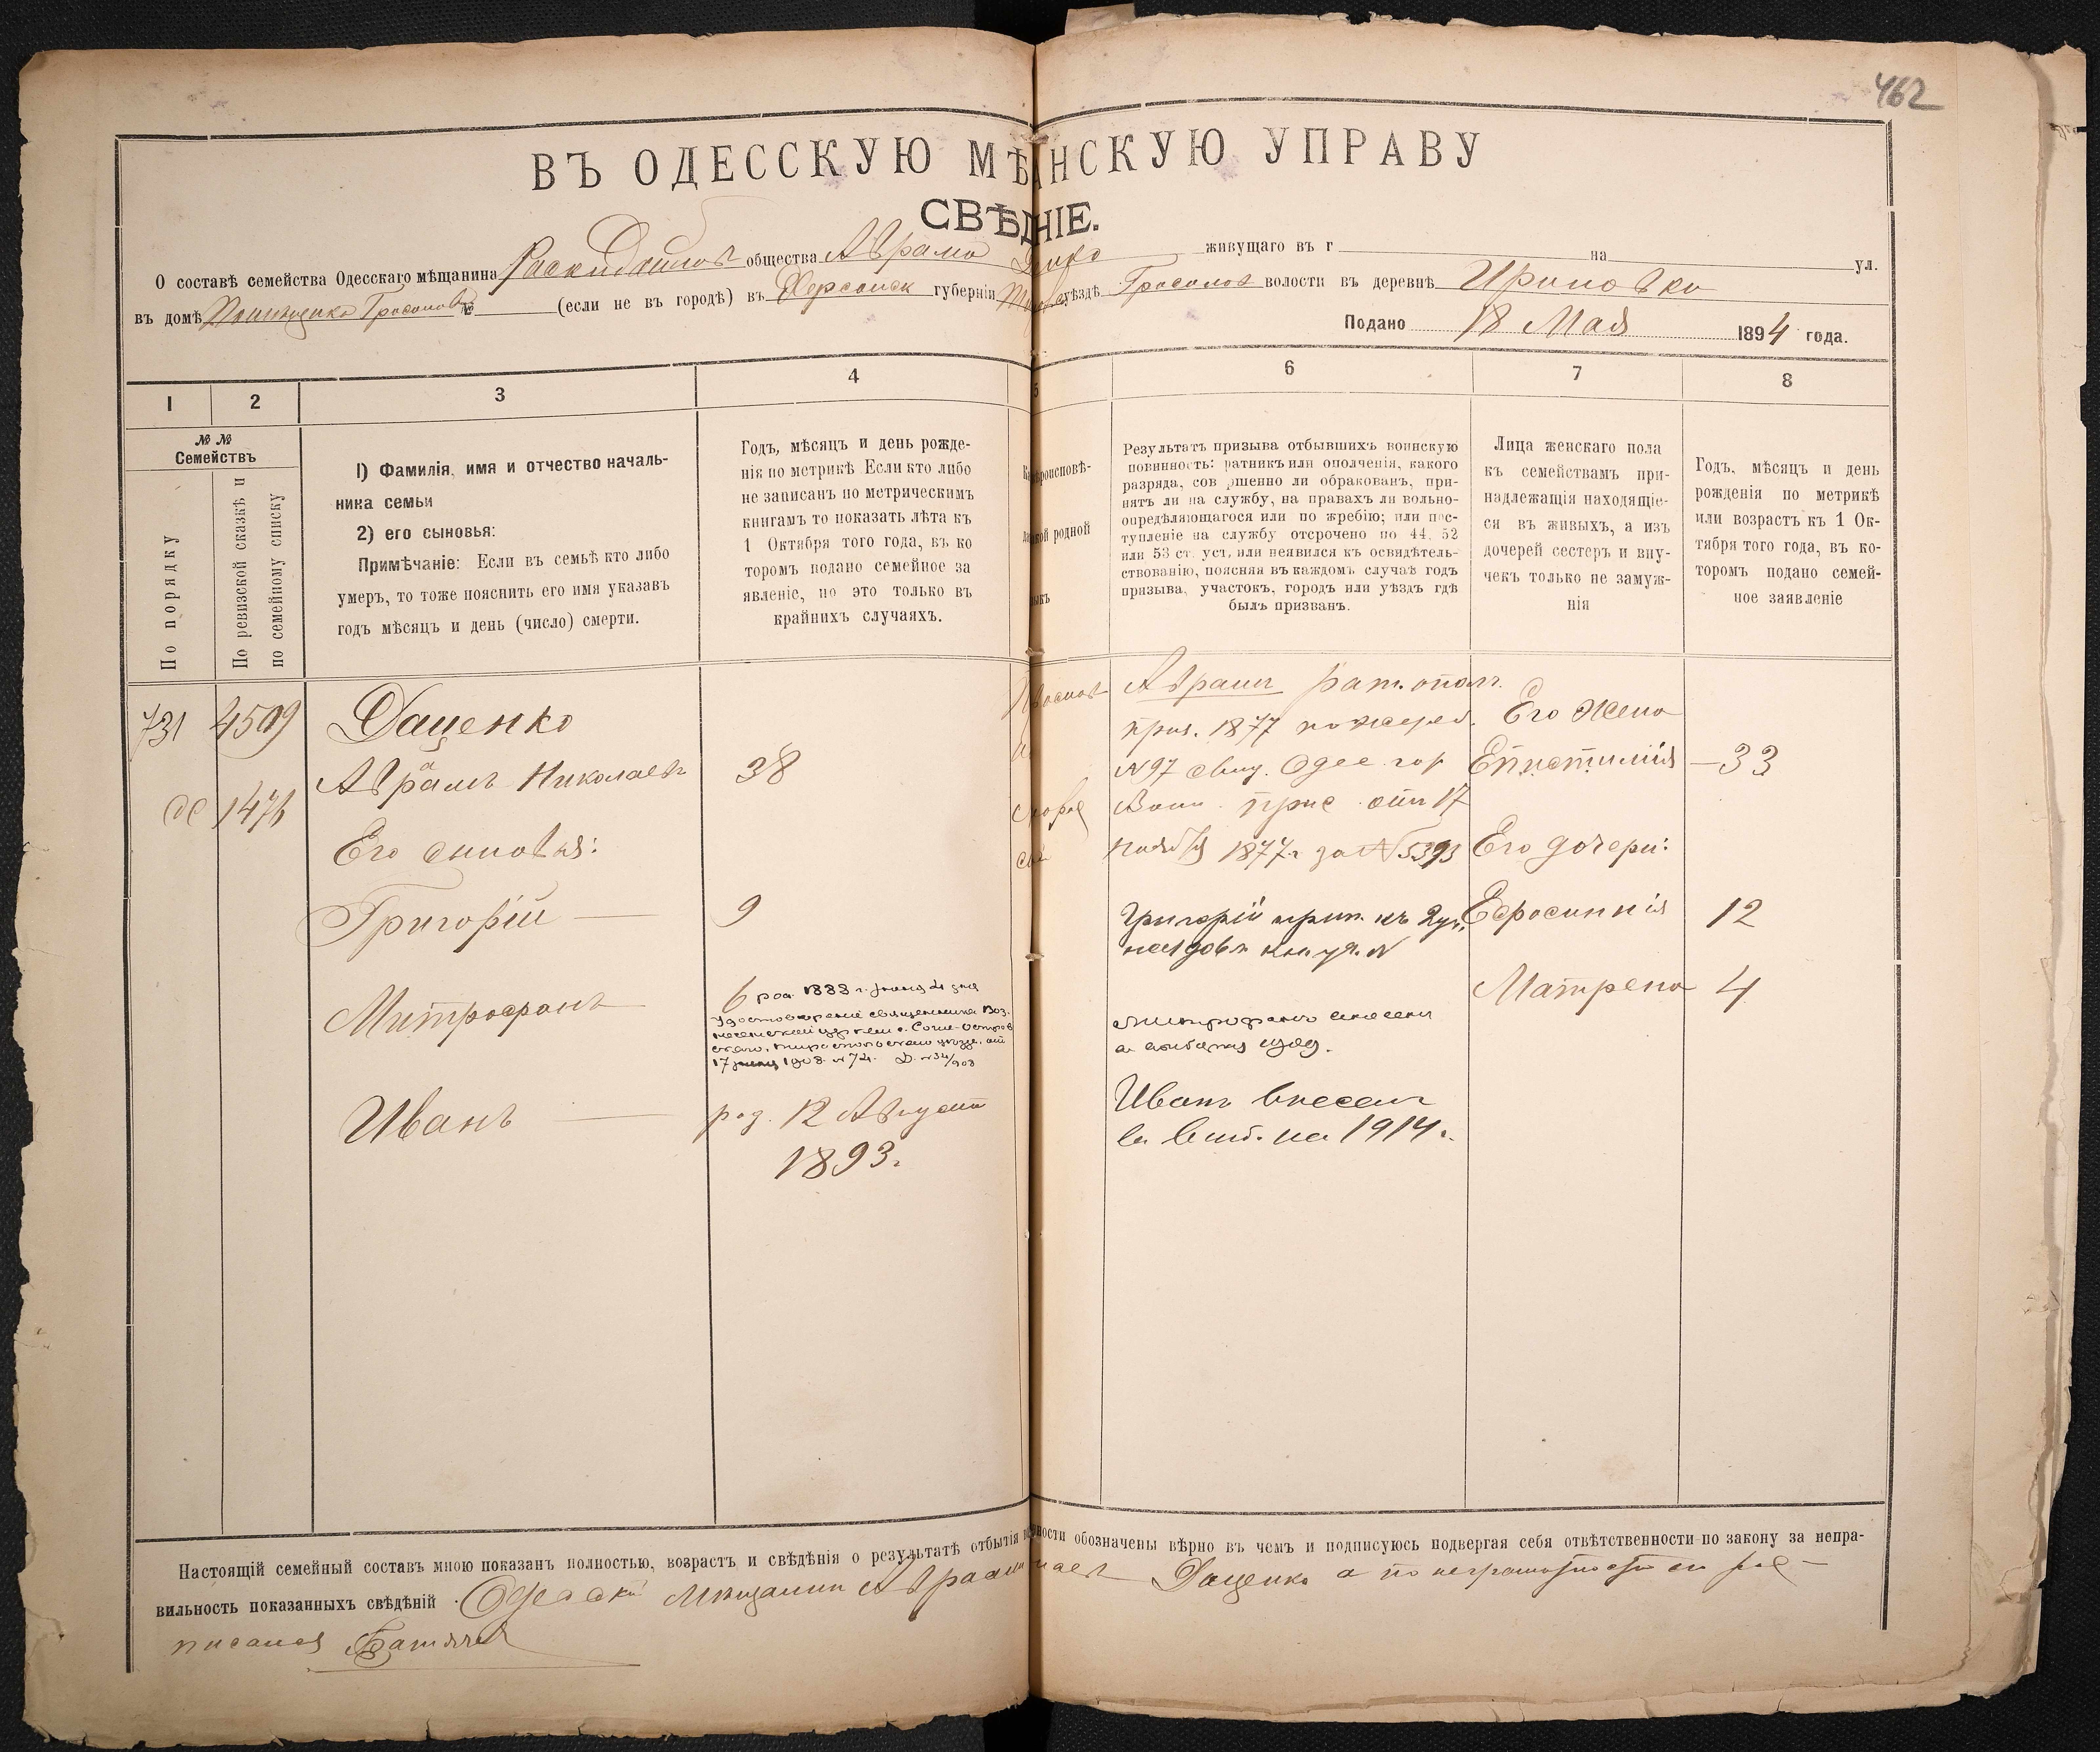 462
ВЪ ОДЕССКУЮ МѢ НСКУЮ УПРАВУ
СВѢД НІЕ.
О составѣ семейства Одесскаго мѣщанина общества Аврама живущаго въ г на ул.
въ домѣ № (если не въ городѣ) въ Херсонск губерніи уѣздѣ Гросулов волости въ деревнѣ Ириновки
Подано 18 Мая 1894 года.
1 2 3 4 5 6 7 8
№ №
Семействъ
По порядку
По ревизской сказкѣ и
по семейному списку
1) Фамилія, имя и отчество началь-
ника семьи
2) его сыновья:
Примѣчаніе: Если въ семьѣ кто либо
умеръ, то тоже пояснить его имя указавъ
годъ мѣсяцъ и день (число) смерти.
Годъ, мѣсяцъ и день рожде-
нія по метрикѣ Если кто либо
не записанъ по метрическимъ
книгамъ то показать лѣта къ
1 Октября того года, въ ко
торомъ подано семейное за
явленіе, но это только въ
крайнихъ случаяхъ.
вѣроисповѣ-
родной
Результатъ призыва отбывшихъ воинскую
повинность: ратникъ или ополченія, какого
разряда, сов ршенно ли обракованъ, при-
нятъ ли на службу, на правахъ ли вольно-
опредѣляющагося или по жребію; или пос-
тупленіе на службу отсрочено по 44, 52
или 53 ст. уст. или неявился къ освидѣтель-
ствованію, поясняя въ каждомъ случаѣ годъ
призыва, участокъ, городъ или уѣздъ гдѣ
былъ призванъ.
Лица женскаго пола
къ семействамъ при-
надлежащія находящіе-
ся въ живыхъ, а изъ
дочерей сестеръ и вну-
чекъ только не замуж-
нія
Годъ, мѣсяцъ и день
рожденія по метрикѣ
или возрастъ къ 1 Ок-
тября того года, въ ко-
торомъ подано семей-
ное заявленіе
731 4509 Даценко
1476 Аврамъ Николаевъ 38
Его сыновья:
Григорій — 9
Митрофанъ — 6 род. 1888 г.
Удостовѣреніе священника Воз.
17 1908. №74.
Иванъ — род. 12 Августа
1893.
Аврамъ рат. ополч.
приз. 1877 по жереб.
№97 свид. Одес. гор
Воин. прис. отъ 17
ноября 1877 г за №5393
Григорій
Митрофанъ внесенъ
Иванъ внесенъ
на 1914 г.
Его жена
Епистимія — 33
Его дочери:
Ефросинія 12
Матрена 4
Настоящій семейный составъ мною показанъ полностью, возрастъ и свѣдѣнія о результатѣ отбытія ности обозначены вѣрно въ чемъ и подписуюсь подвергая себя отвѣтственности по закону за непра-
вильность показанныхъ свѣдѣній Одесскій Мѣщанин Авраам Даценко а по неграмотности его рос-
писался